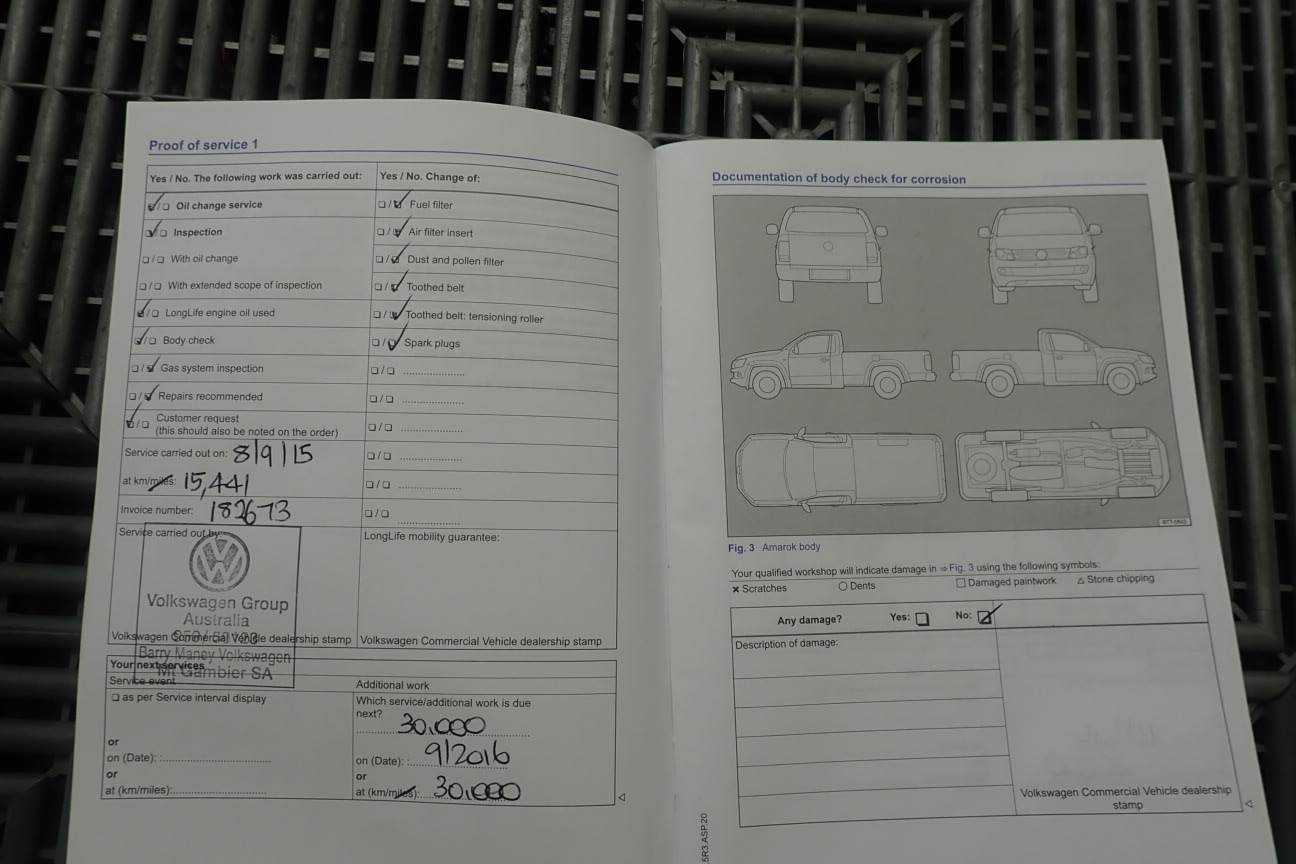 Proof of service 1
Yes / No. The following work was carried out:
Oil change service
Inspection
With oil change
With extended scope of inspection
LongLife engine oil used
Body check
Gas system inspection
Repairs recommended
Customer request
(this should also be noted on the order)
Service carried out on: 8/9/15
at km/miles: 15,441
Invoice number: 182673
Service carried out by:
Volkswagen Group
Australia
Volkswagen Commercial Vehicle dealership stamp
Barry Maney Volkswagen
Mt Gambier SA
Yes / No. Change of:
Fuel filter
Air filter insert
Dust and pollen filter
Toothed belt
Toothed belt: tensioning roller
Spark plugs
LongLife mobility guarantee:
Volkswagen Commercial Vehicle dealership stamp
Your next services
Service event
as per Service interval display
or
on (Date):
or
at (km/miles):
Additional work
Which service/additional work is due
next? 30.000
on (Date): 9/2016
or
at (km/miles): 30.000
Documentation of body check for corrosion
Fig. 3 Amarok body
Your qualified workshop will indicate damage in ⇒ Fig. 3 using the following symbols:
Scratches Dents Damaged paintwork Stone chipping
Any damage? Yes: No:
Description of damage:
Volkswagen Commercial Vehicle dealership
stamp